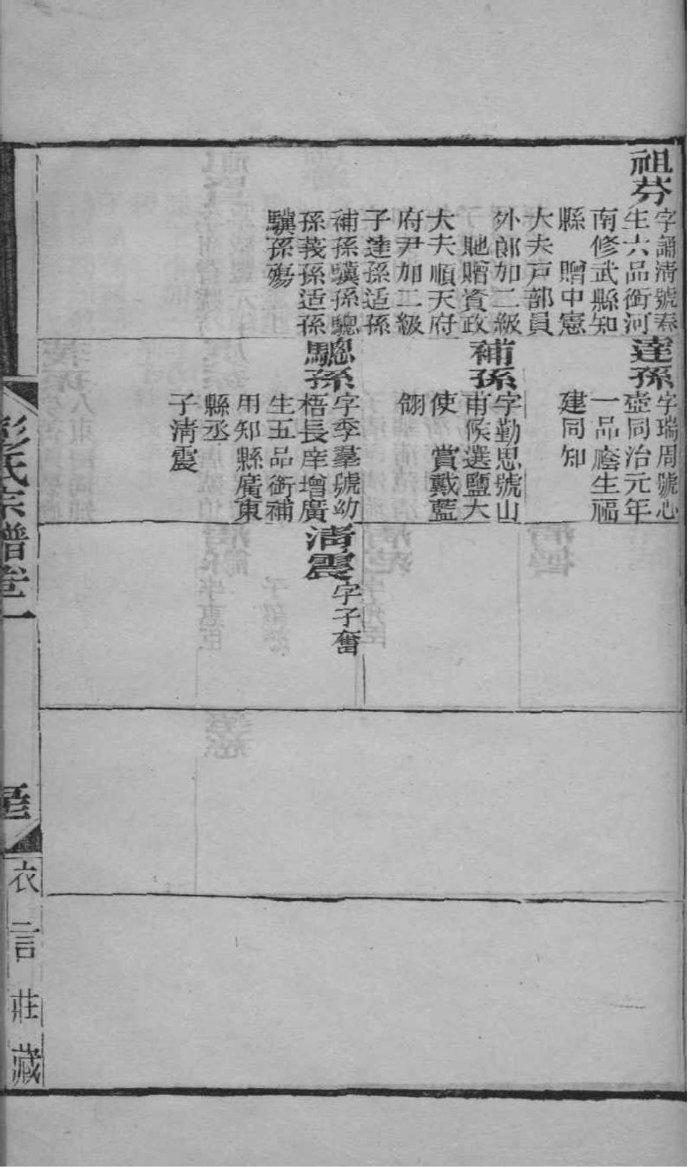 祖芬
字誦淸號春
生六品銜河
南修武縣知
縣　贈中憲
大夫戸部員
外郎加二級
　貤贈資政
大夫順天府
府尹加二級
子達孫适孫
補孫驥孫驄
孫莪孫适孫
驥孫殤
達孫
字瑞周號心
壺同治元年
一品廕生福
建同知
補孫
字勤思號山
甫候選鹽大
使　賞戴藍
翎
驄孫
字季羣號幼
梧長庠增廣
生五品銜補
用知縣廣東
縣丞
子淸震
淸震
字子奮
彭氏宗譜卷二
衣言莊藏